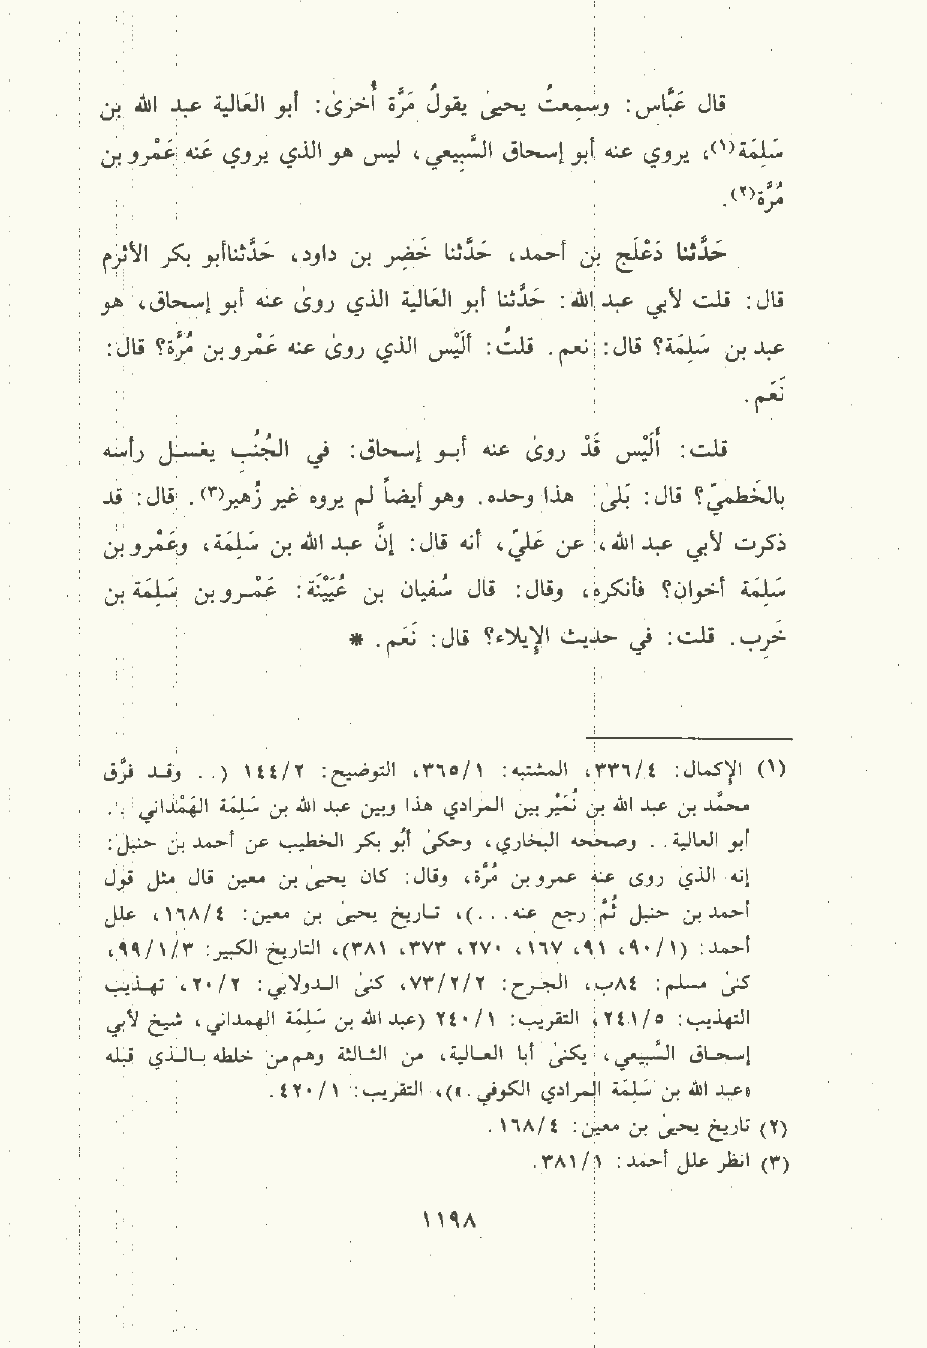 قال عَبَّاس: وسمِعتُ يحيىٰ يقولُ مَرَّة أُخرَىٰ: أبو العَالية عبد الله بن
سَلِمَة⁽¹⁾، يروي عنه أبو إسحاق السَّبِيعي، ليس هو الذي يروي عَنه عَمْرو بن
مُرَّة⁽²⁾.
حَدَّثنا دَعْلَج بن أحمد، حَدَّثنا خَضِر بن داود، حَدَّثناأبو بكر الأثرم
قال: قلت لأبي عبد الله: حدَّثنا أبو العَالية الذي روىٰ عنه أبو إسحاق، هو
عبد بن سَلِمَة؟ قال: نعم. قلتُ: ألَيْس الذي روىٰ عنه عَمْرو بن مُرَّة؟ قال:
نَعَم.
قلت: أَلَيْس قَدْ روىٰ عنه أبو إسحاق: في الجُنُب يغسل رأسه
بالخَطمِيّ؟ قال: بَلىٰ هذا وحده. وهو أيضاً لم يروه غير زُهير⁽³⁾. قال: قد
ذكرت لأبي عبد الله، عن عَليّ، أنه قال: إنَّ عبد الله بن سَلِمَة، وعَمْرو بن
سَلِمَة أخوان؟ فأنكره، وقال: قال سُفيان بن عُيَيْنَة: عَمْرو بن سَلِمَة بن
خَرِب. قلت: في حديث الإيلاء؟ قال: نَعَم. *
(١) الإكمال: ٣٣٦/٤، المشتبه: ٣٦٥/١، التوضيح: ١٤٤/٢ (.. وقد فرَّق
محمَّد بن عبد الله بن نُمَيْر بين المرادي هذا وبين عبد الله بن سَلِمَة الهَمْداني :.
أبو العالية.. وصححه البخاري، وحكىٰ أبو بكر الخطيب عن أحمد بن حنبل:
إنه الذي روى عنه عمرو بن مُرَّة، وقال: كان يحيىٰ بن معين قال مثل قول
أحمد بن حنبل ثُمَّ رجع عنه...)، تاريخ يحيىٰ بن معين: ١٦٨/٤، علل
أحمد: (٩٠/١، ٩١، ١٦٧، ٢٧٠، ٣٧٣، ٣٨١)، التاريخ الكبير: ٩٩/١/٣،
كنىٰ مسلم: ٨٤ب، الجرح: ٧٣/٢/٢، كنىٰ الدولابي: ٢٠/٢، تهذيب
التهذيب: ٢٤١/٥، التقريب: ٢٤٠/١ (عبد الله بن سَلِمَة الهمداني، شيخ لأبي
إسحاق السَّبِيعي، يكنىٰ أبا العالية، من الثالثة وهم من خلطه بالذي قبله
«عبد الله بن سَلِمَة المرادي الكوفي.»)، التقريب: ٤٢٠/١.
(٢) تاريخ يحيىٰ بن معين: ١٦٨/٤.
(٣) انظر علل أحمد: ٣٨١/١.
١١٩٨